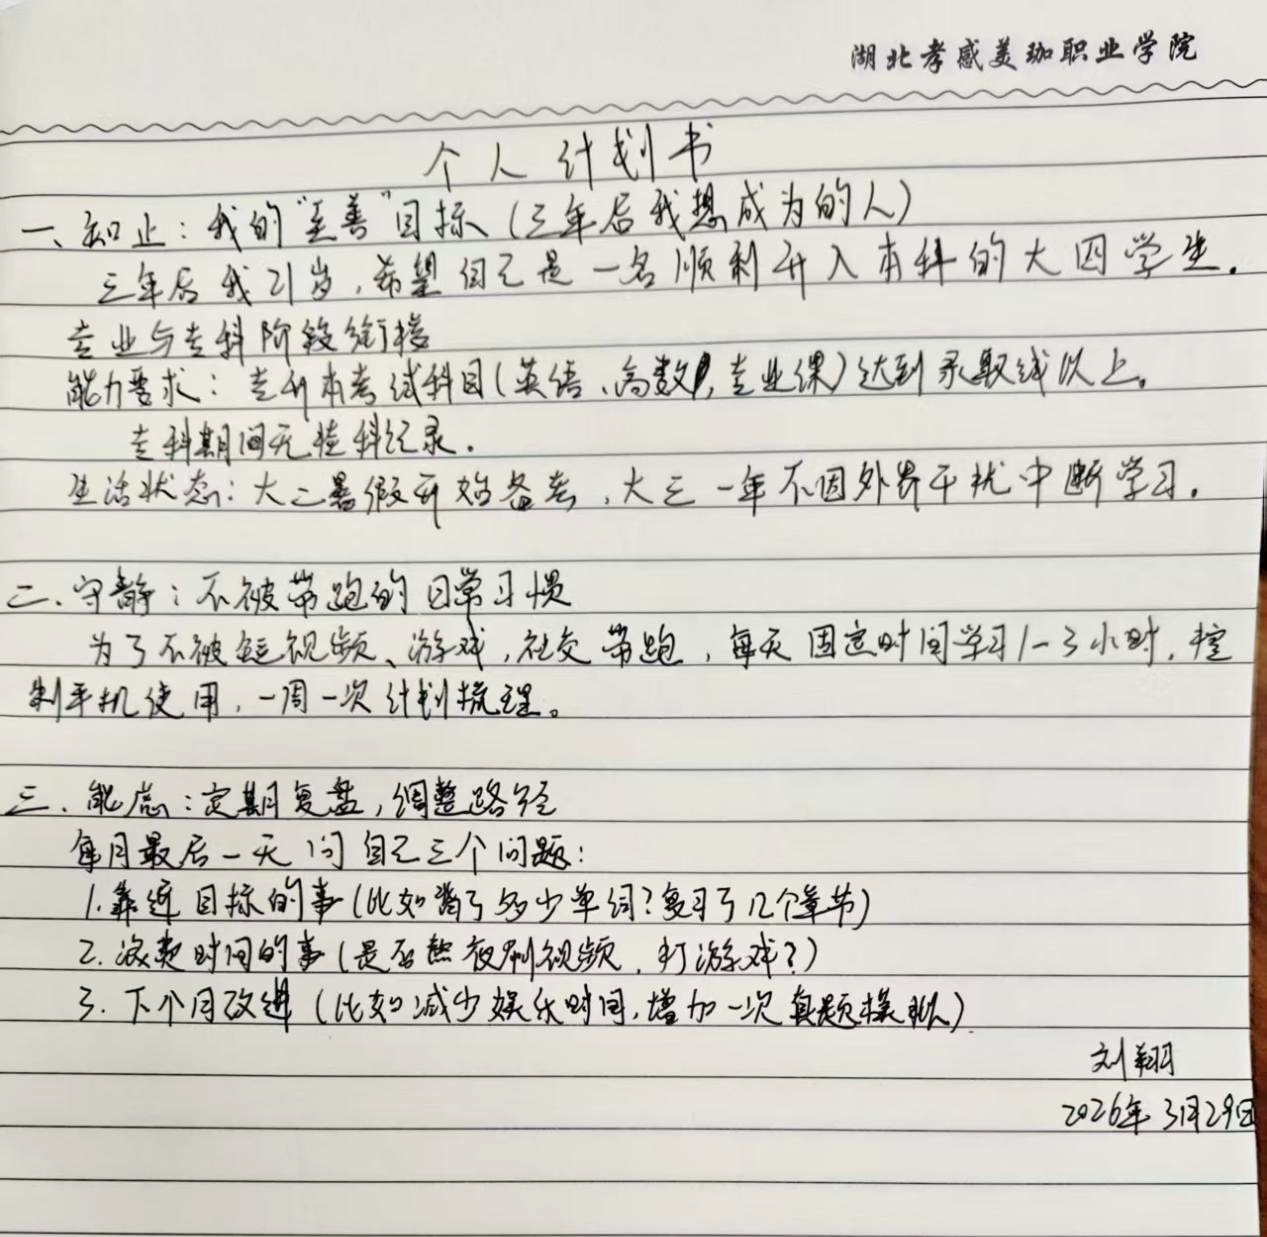 湖北孝感美珈职业学院
个人计划书
一、知止：我的“至善”目标（三年后我想成为的人）
三年后我21岁，希望自己是一名顺利升入本科的大四学生。
专业与专科阶段衔接
能力要求：专升本考试科目（英语、高数，专业课）达到录取线以上。
专科期间无挂科记录。
生活状态：大二暑假开始备考，大三一年不因外界干扰中断学习。
二、守静：不被带跑的日常习惯
为了不被短视频、游戏，社交带跑，每天固定时间学习1-3小时，控
制手机使用，一周一次计划梳理。
三、能虑：定期复盘，调整路径
每月最后一天问自己三个问题：
1.靠近目标的事（比如背了多少单词？复习了几个章节）
2.浪费时间的事（是否熬夜刷视频，打游戏？）
3.下个月改进（比如减少娱乐时间，增加一次真题模拟）
刘翔
2026年3月29日